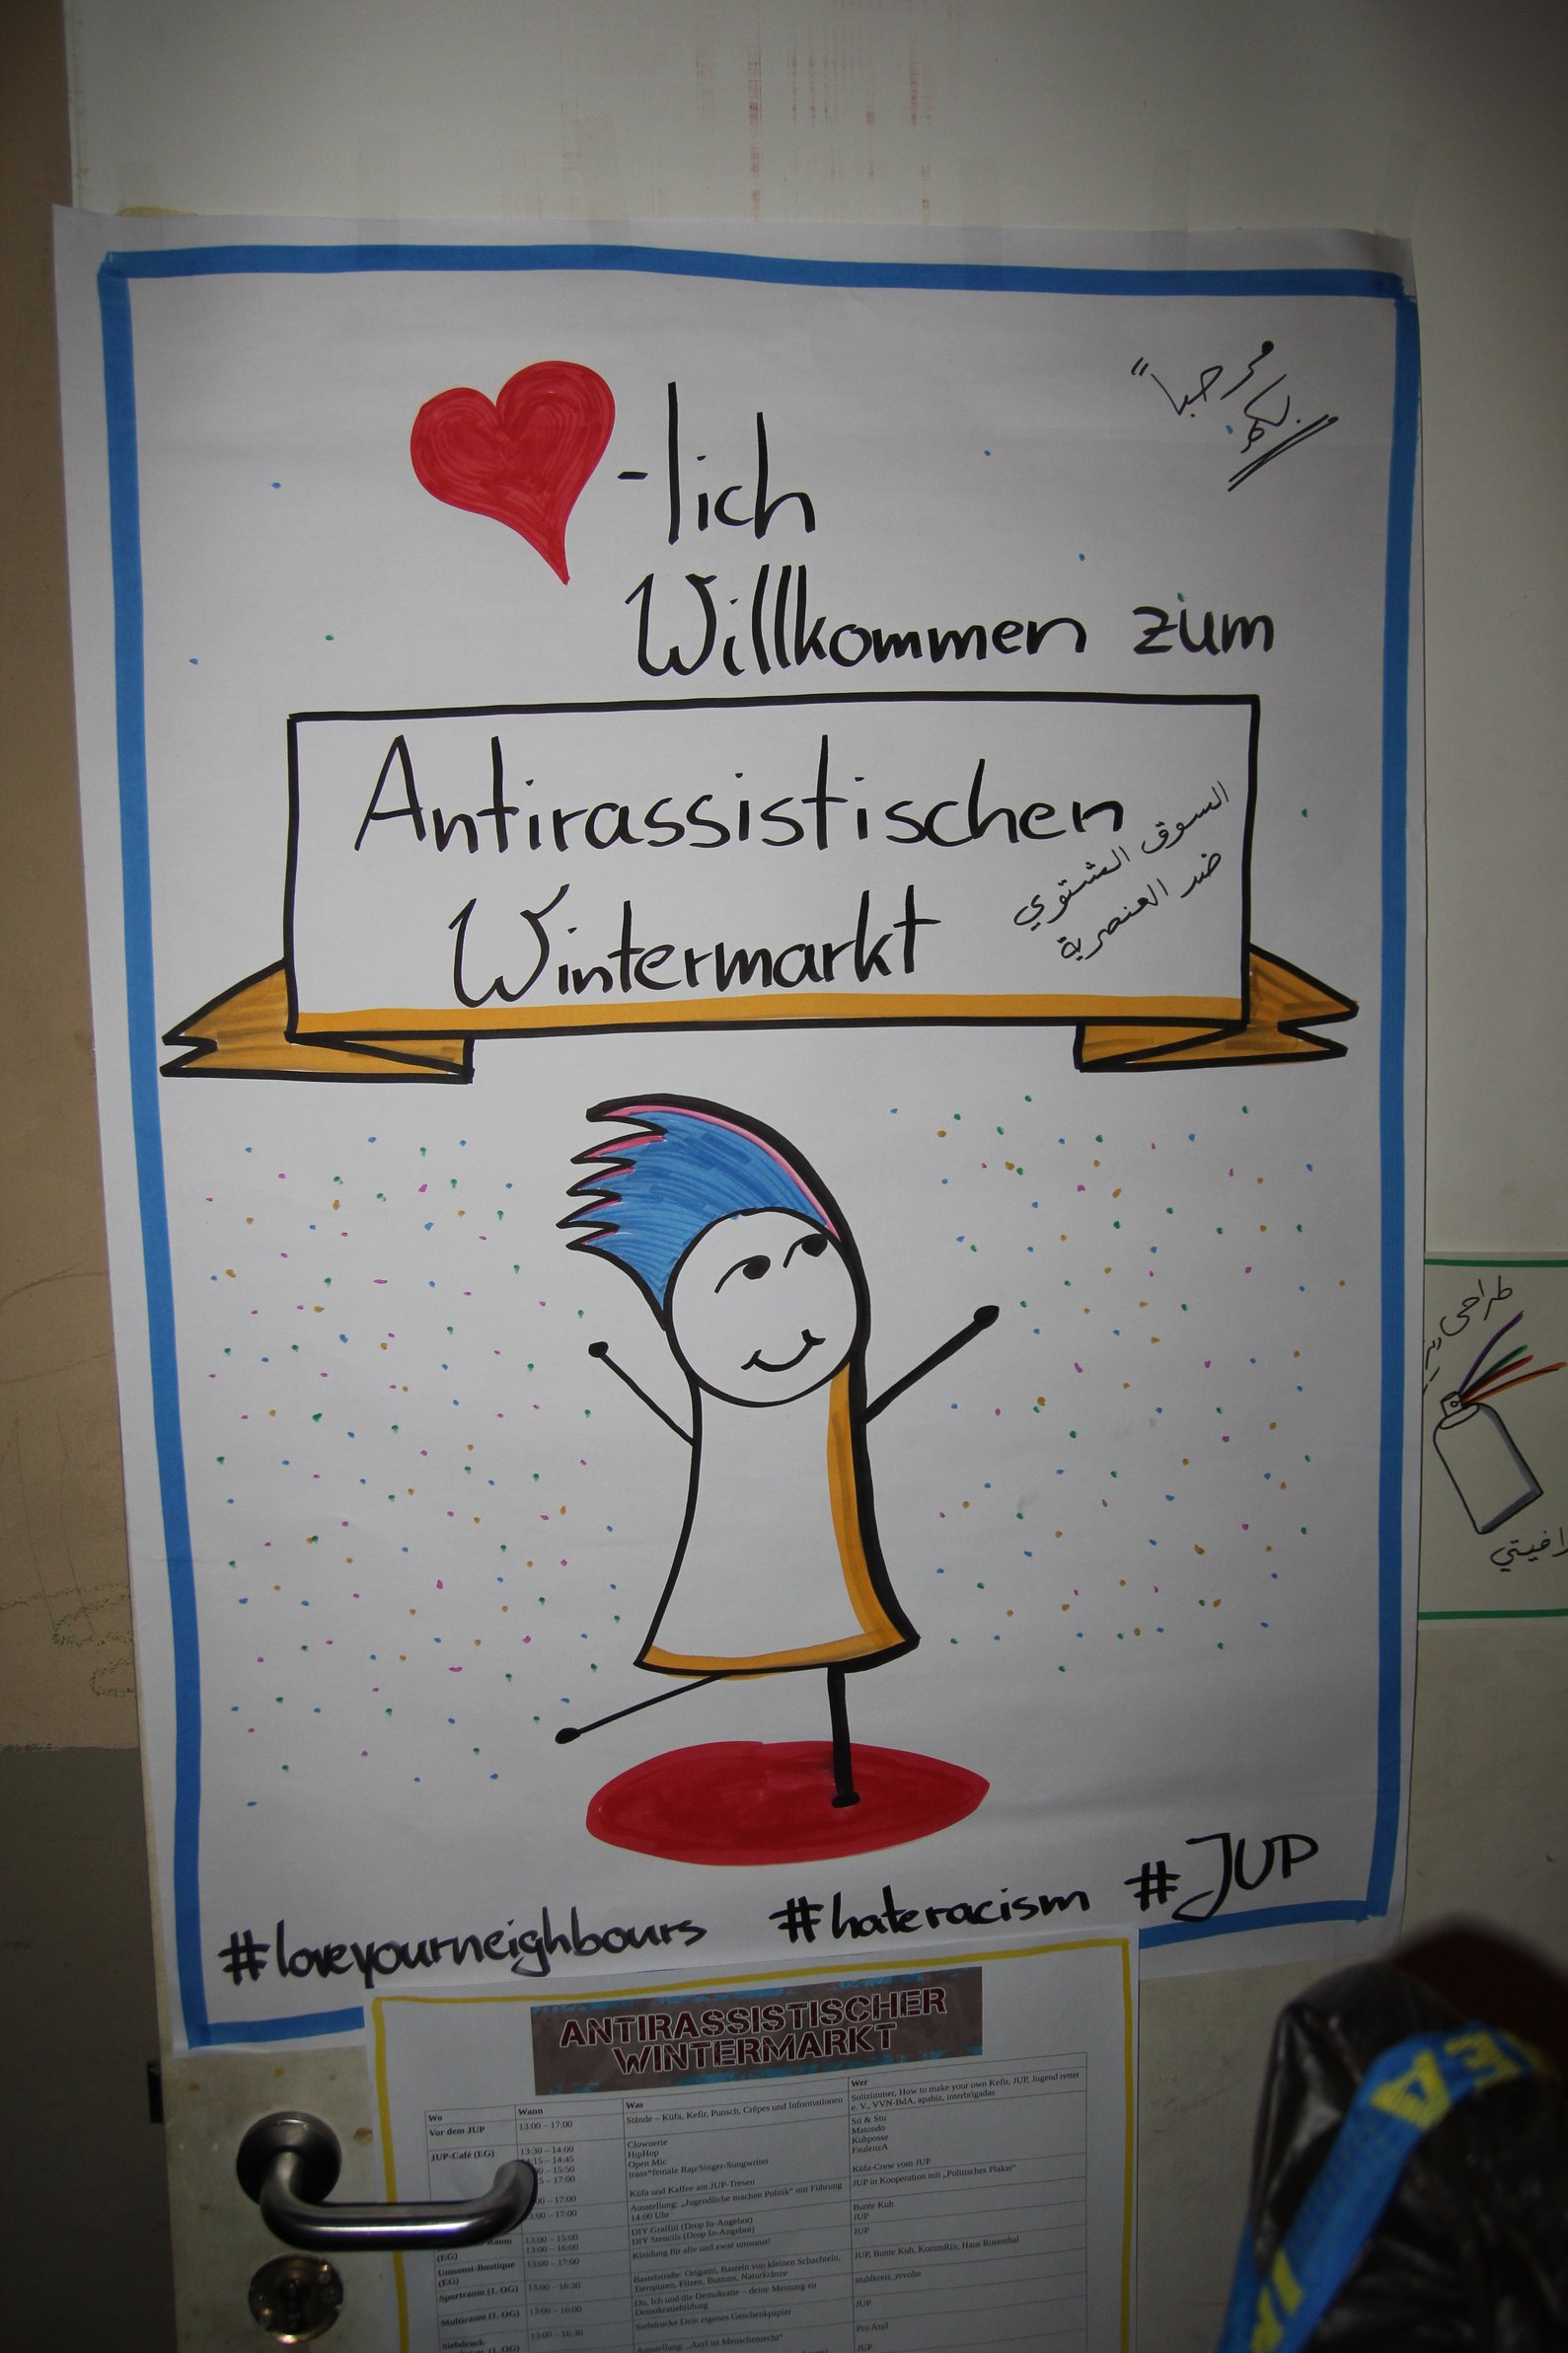 -lich
مرحبا"
بكم
Willkommen zum
Antirassistischen
Wintermarkt
السوق الشتوي
ضد العنصرية
#loveyourneighbours #hateracism #JUP
طراحی
ANTIRASSISTISCHER
WINTERMARKT
Wo Wann Was Wer
Vor dem JUP 13:00 – 17:00 Stände – Küfa, Kefir, Punsch, Crêpes und Informationen Solizimmer, How to make your own Kefir, JUP, Jugend rettet
e. V., VVN-BdA, apabiz, interbrigadas
JUP-Café (EG) 13:30 – 14:00 Clownerie Sti & Stu
14:15 – 14:45 HipHop Matondo
15:50 Open Mic Kuhposse
17:00 trans*female Rap/Singer-Songwriter FaulenzA
17:00 Küfa und Kaffee am JUP-Tresen Küfa-Crew vom JUP
13:00 – 17:00 Ausstellung: „Jugendliche machen Politik“ mit Führung JUP in Kooperation mit „Politisches Plakat“
14:00 Uhr
(EG) 13:00 – 15:00 DIY Graffiti (Drop In-Angebot) Bunte Kuh
13:00 – 16:00 DIY Stencils (Drop In-Angebot) JUP
Umsonst-Boutique
(EG) 13:00 – 17:00 Kleidung für alle und zwar umsonst! JUP
Sportraum (1. OG) 13:00 – 16:30 Bastelstraße: Origami, Basteln von kleinen Schachteln, JUP, Bunte Kuh, KommRin, Haus Rosenthal
Tierspuren, Filzen, Buttons, Naturkränze
Multiraum (1. OG) 13:00 – 16:00 Du, Ich und die Demokratie – deine Meinung zu stuhlkreis_revolte
Demokratiebildung
Siebdruck- 13:00 – 16:30 Siebdrucke Dein eigenes Geschenkpapier JUP
(1. OG) Ausstellung: „Asyl ist Menschenrecht“ Pro Asyl
JUP